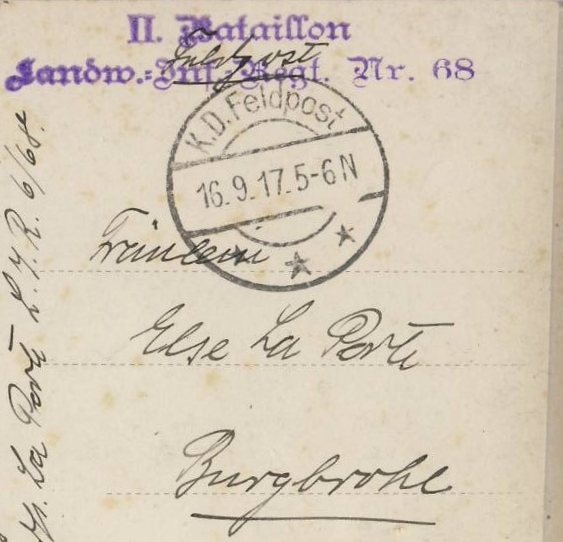 II. Bataillon
Feldpost
Landw.=Inf.Regt. Nr. 68
K.D.Feldpost
16.9.17.5-6N
Fräulein
Else La Porte
Burgbrohl
La Porte L.I.R. 6/68.